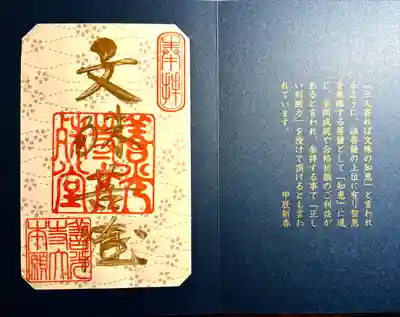 「三人寄れば文殊の知恵」と言われ
るように、諸菩薩の上位に有り智恵
を象徴する菩薩として「知恵」に通
じ、学問成就や合格祈願のご利益が
あると言われ、参拝する事で「正し
い判断力」を授けて頂けるとも言わ
れています。
甲辰新春
奉拝
文殊菩薩
善光
寺大
本願